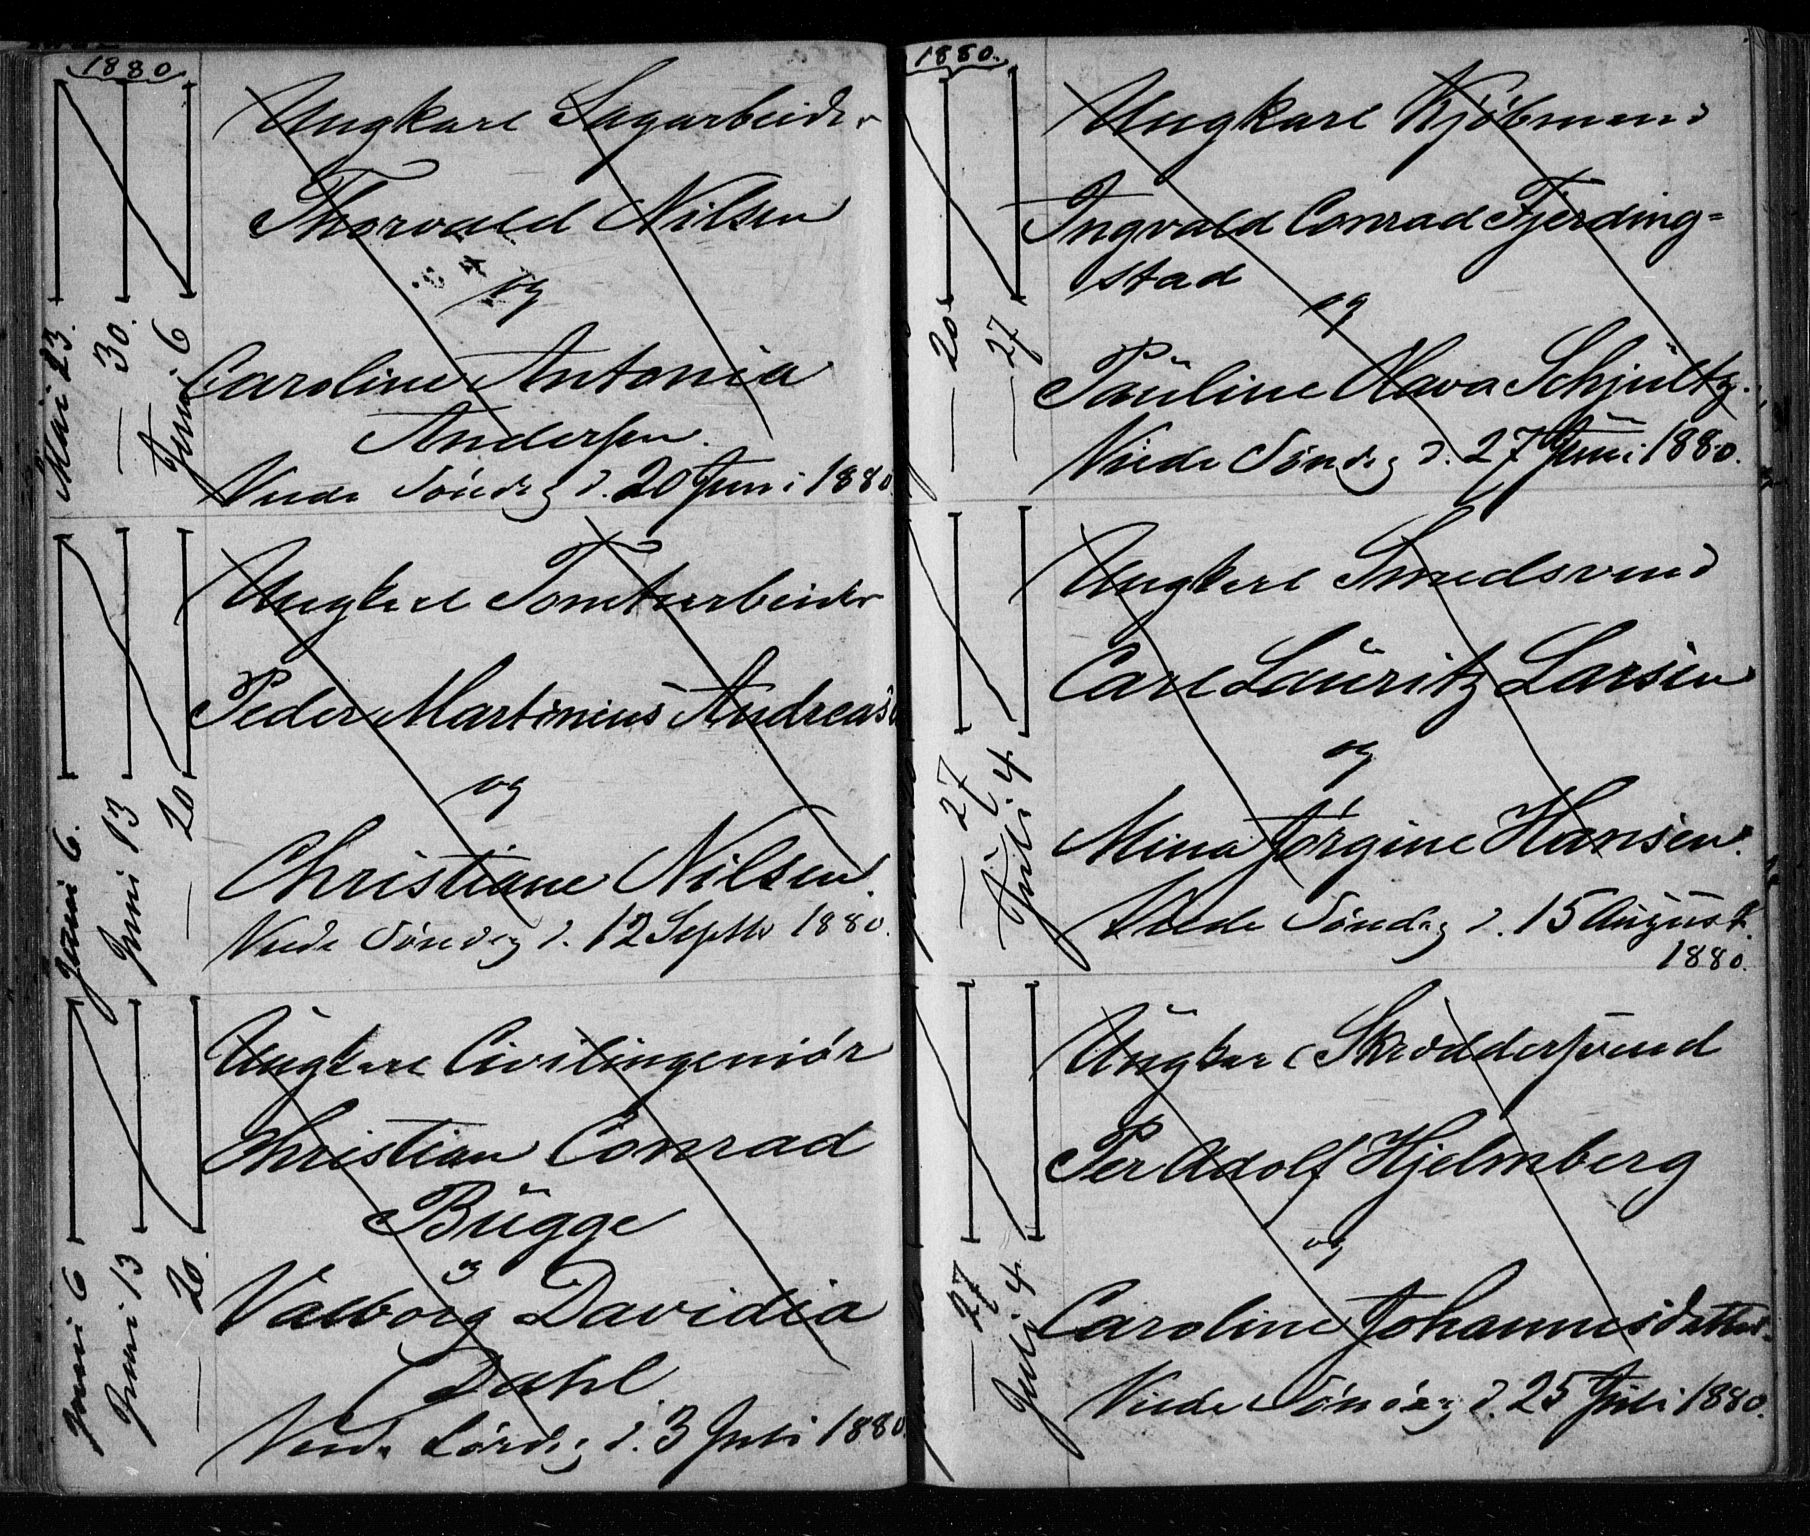 1880.
Mai 23.
— 30.
Juni 6
Ungkarl Sagarbeider
Thorvald Nilsen
og
Caroline Antonia
Andersen.
Viede Søndag d. 20 Juni 1880
Juni 6.
Juni 13
— 20
Ungkarl Tomtearbeider
Peder Martinius Andreas
og
Christiane Nilsen.
Viede Søndag d. 12 Septbr 1880.
Juni 6
Juni 13
— 20.
Ungkarl Civilingeniør
Christian Conrad
Bügge
og
Valborg Davidia
Dahl
Viede Lørdag d. 3 Juli 1880
1880.
— 20
— 27
Ungkarl Kjøbmand
Ingvald Conrad Fjerding=
stad
og
Paŭline Olava Schjŭltz.
Viede Søndag d. 27 Juni 1880.
— 27
Juli 4
Ungkarl Smedsvend
Carl Laŭritz Larsen
og
Mina Jørgine Hansen.
Viede Søndag d. 15 August
1880.
— 27
Juli 4
Ungkarl Skræddersvend
Per Adolf Hjelmberg
og
Caroline Johannesdatter
Viede Søndag d. 25 Juli 1880.